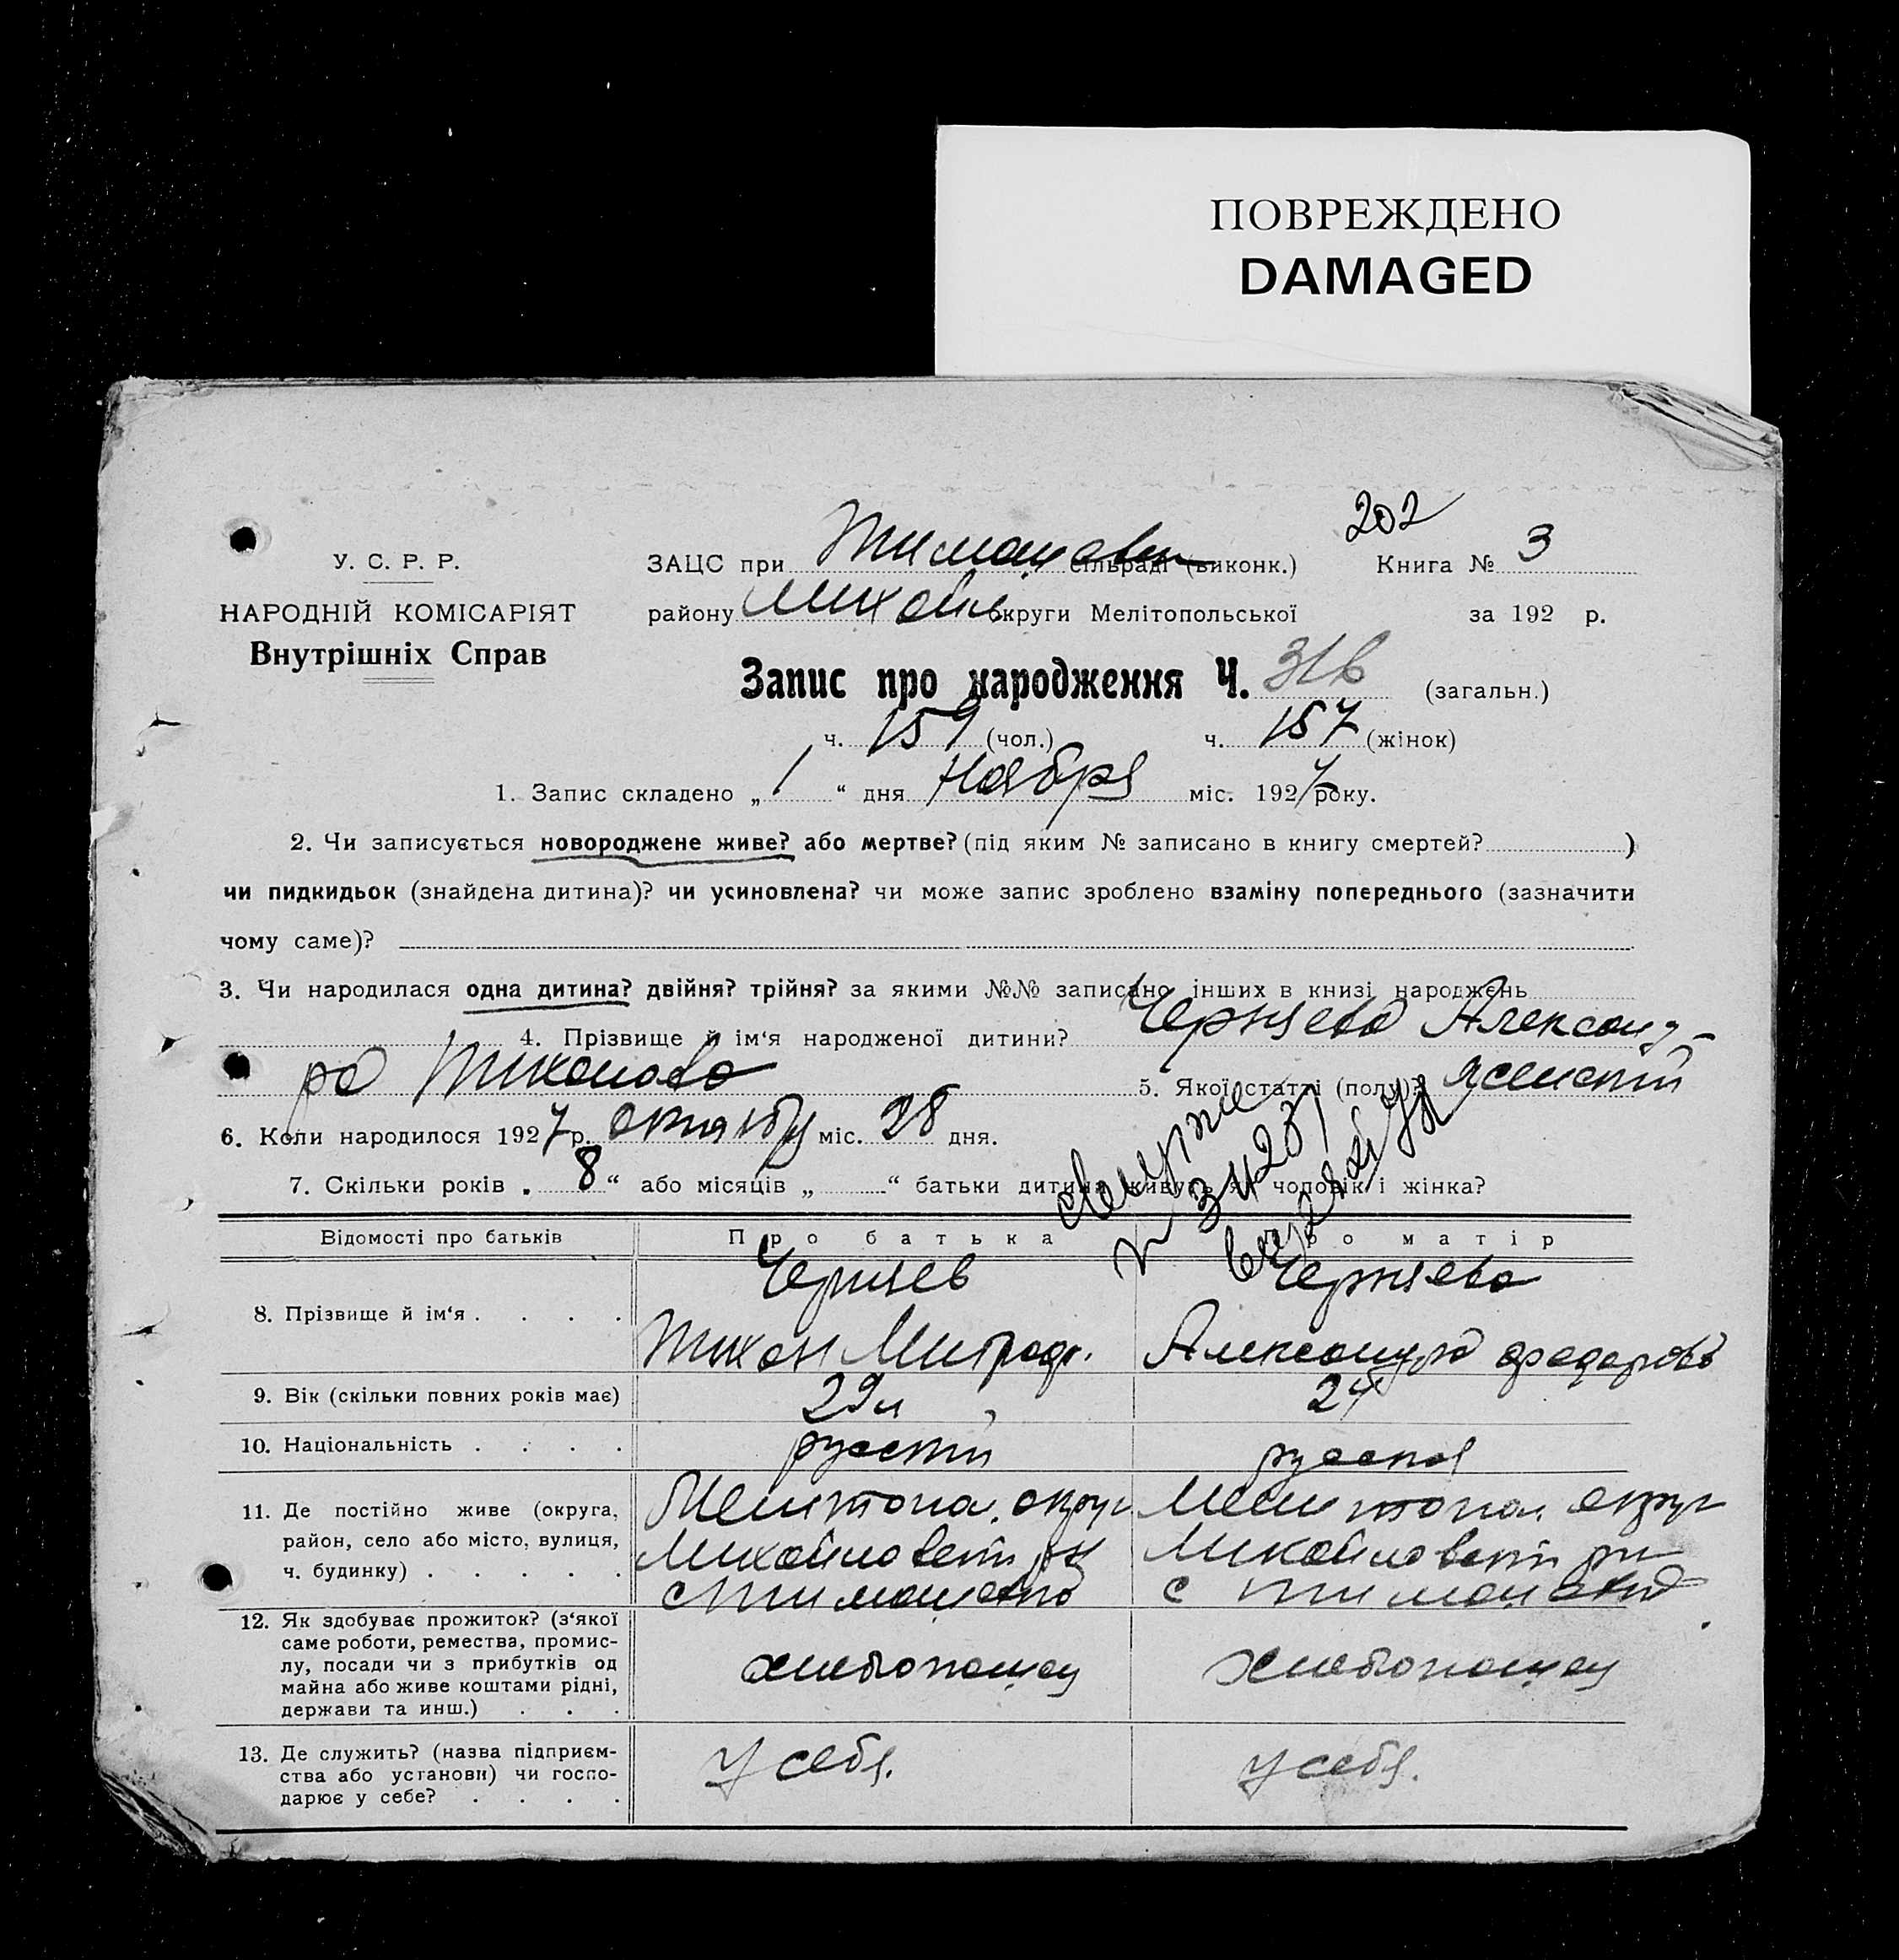 ПОВРЕЖДЕНО
DAMAGED
202
У. С. Р. Р.
НАРОДНІЙ КОМІСАРІЯТ
Внутрішніх Справ
ЗАЦС при Тимошовк сільраді (виконк.) Книга № 3
району Михайл округи Мелітопольської за 192 р.
Запис про народження Ч. 316 (загальн.)
ч. 159 (чол.) ч. 157 (жінок)
1. Запис складено „ 1 “ дня Ноября міс. 1927 року.
2. Чи записується новороджене живе? або мертве? (під яким № записано в книгу смертей? )
чи пидкидьок (знайдена дитина)? чи усиновлена? чи може запис зроблено взаміну попереднього (зазначити
чому саме)?
3. Чи народилася одна дитина? двійня? трійня? за якими №№ записано інших в книзі народжень
4. Прізвище й ім‘я народженої дитини? Черняева Александ-
ра Тихонова 5. Якої статті (полу)? женский
6. Коли народилося 1927 р. октября міс. 28 дня.
7. Скільки років „ 8 “ або місяців „ “ батьки дитини живуть як чоловік і жінка?
Відомості про батьків Про батька Про матір
8. Прізвище й ім‘я . . . .
Черняев
Тихон Митроф.
Черняева
Александра Федорова
9. Вік (скільки повних років має) 29 л 24
10. Національність . . . . русский русская
11. Де постійно живе (округа,
район, село або місто, вулиця,
ч. будинку) . . . . .
Мелитопол. округ
Михайловский рн
с Тимошовка
Мелитопол. округ
Михайловский рн
с Тимошовка
12. Як здобуває прожиток? (з‘якої
саме роботи, ремества, промис-
лу, посади чи з прибутків од
майна або живе коштами рідні,
держави та инш.) . . .
хлебопашец хлебопашец
13. Де служить? (назва підприєм-
ства або установи) чи госпо-
дарює у себе? . . . .
у себя. у себя.